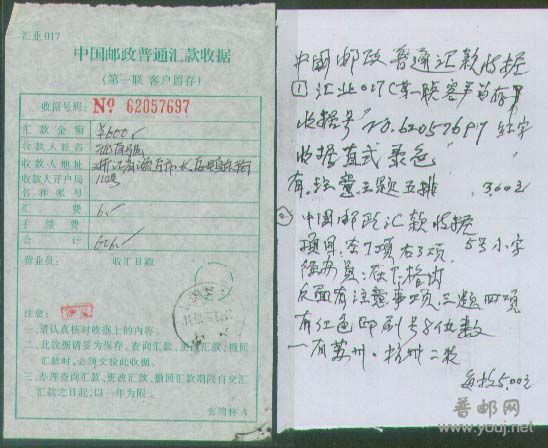 汇业 017
中国邮政普通汇款收据
(第一联 客户留存)
收据号码: № 62057697
汇款金额 ¥600
收款人姓名
收款人地址 浙江省海宁市
收款人开户局名和账号 110号
汇费 6
手续费
合计 606
营业员: 收汇日戳
注意:
一、请认真核对收据上的内容。
二、此收据请妥为保存,查询汇款、更改汇款、撤回
汇款时,必须交验此收据。
三、办理查询汇款、更改汇款、撤回汇款期限自交汇
汇款之日起,以一年为限。
中国邮政普通汇款收据
① 汇业017(第一联客户留存)
收据号 No.62057697 红字
收据直式 色
有 注意三题五排 3.60元
② 中国邮政汇款收据
项间,左7项右3项, 5号小字
在下格出
反面有注意事项,三题四项
有红色印刷号8位数
一有苏州·杭州二枚
每枚5.00元
普邮网
www.youj.net